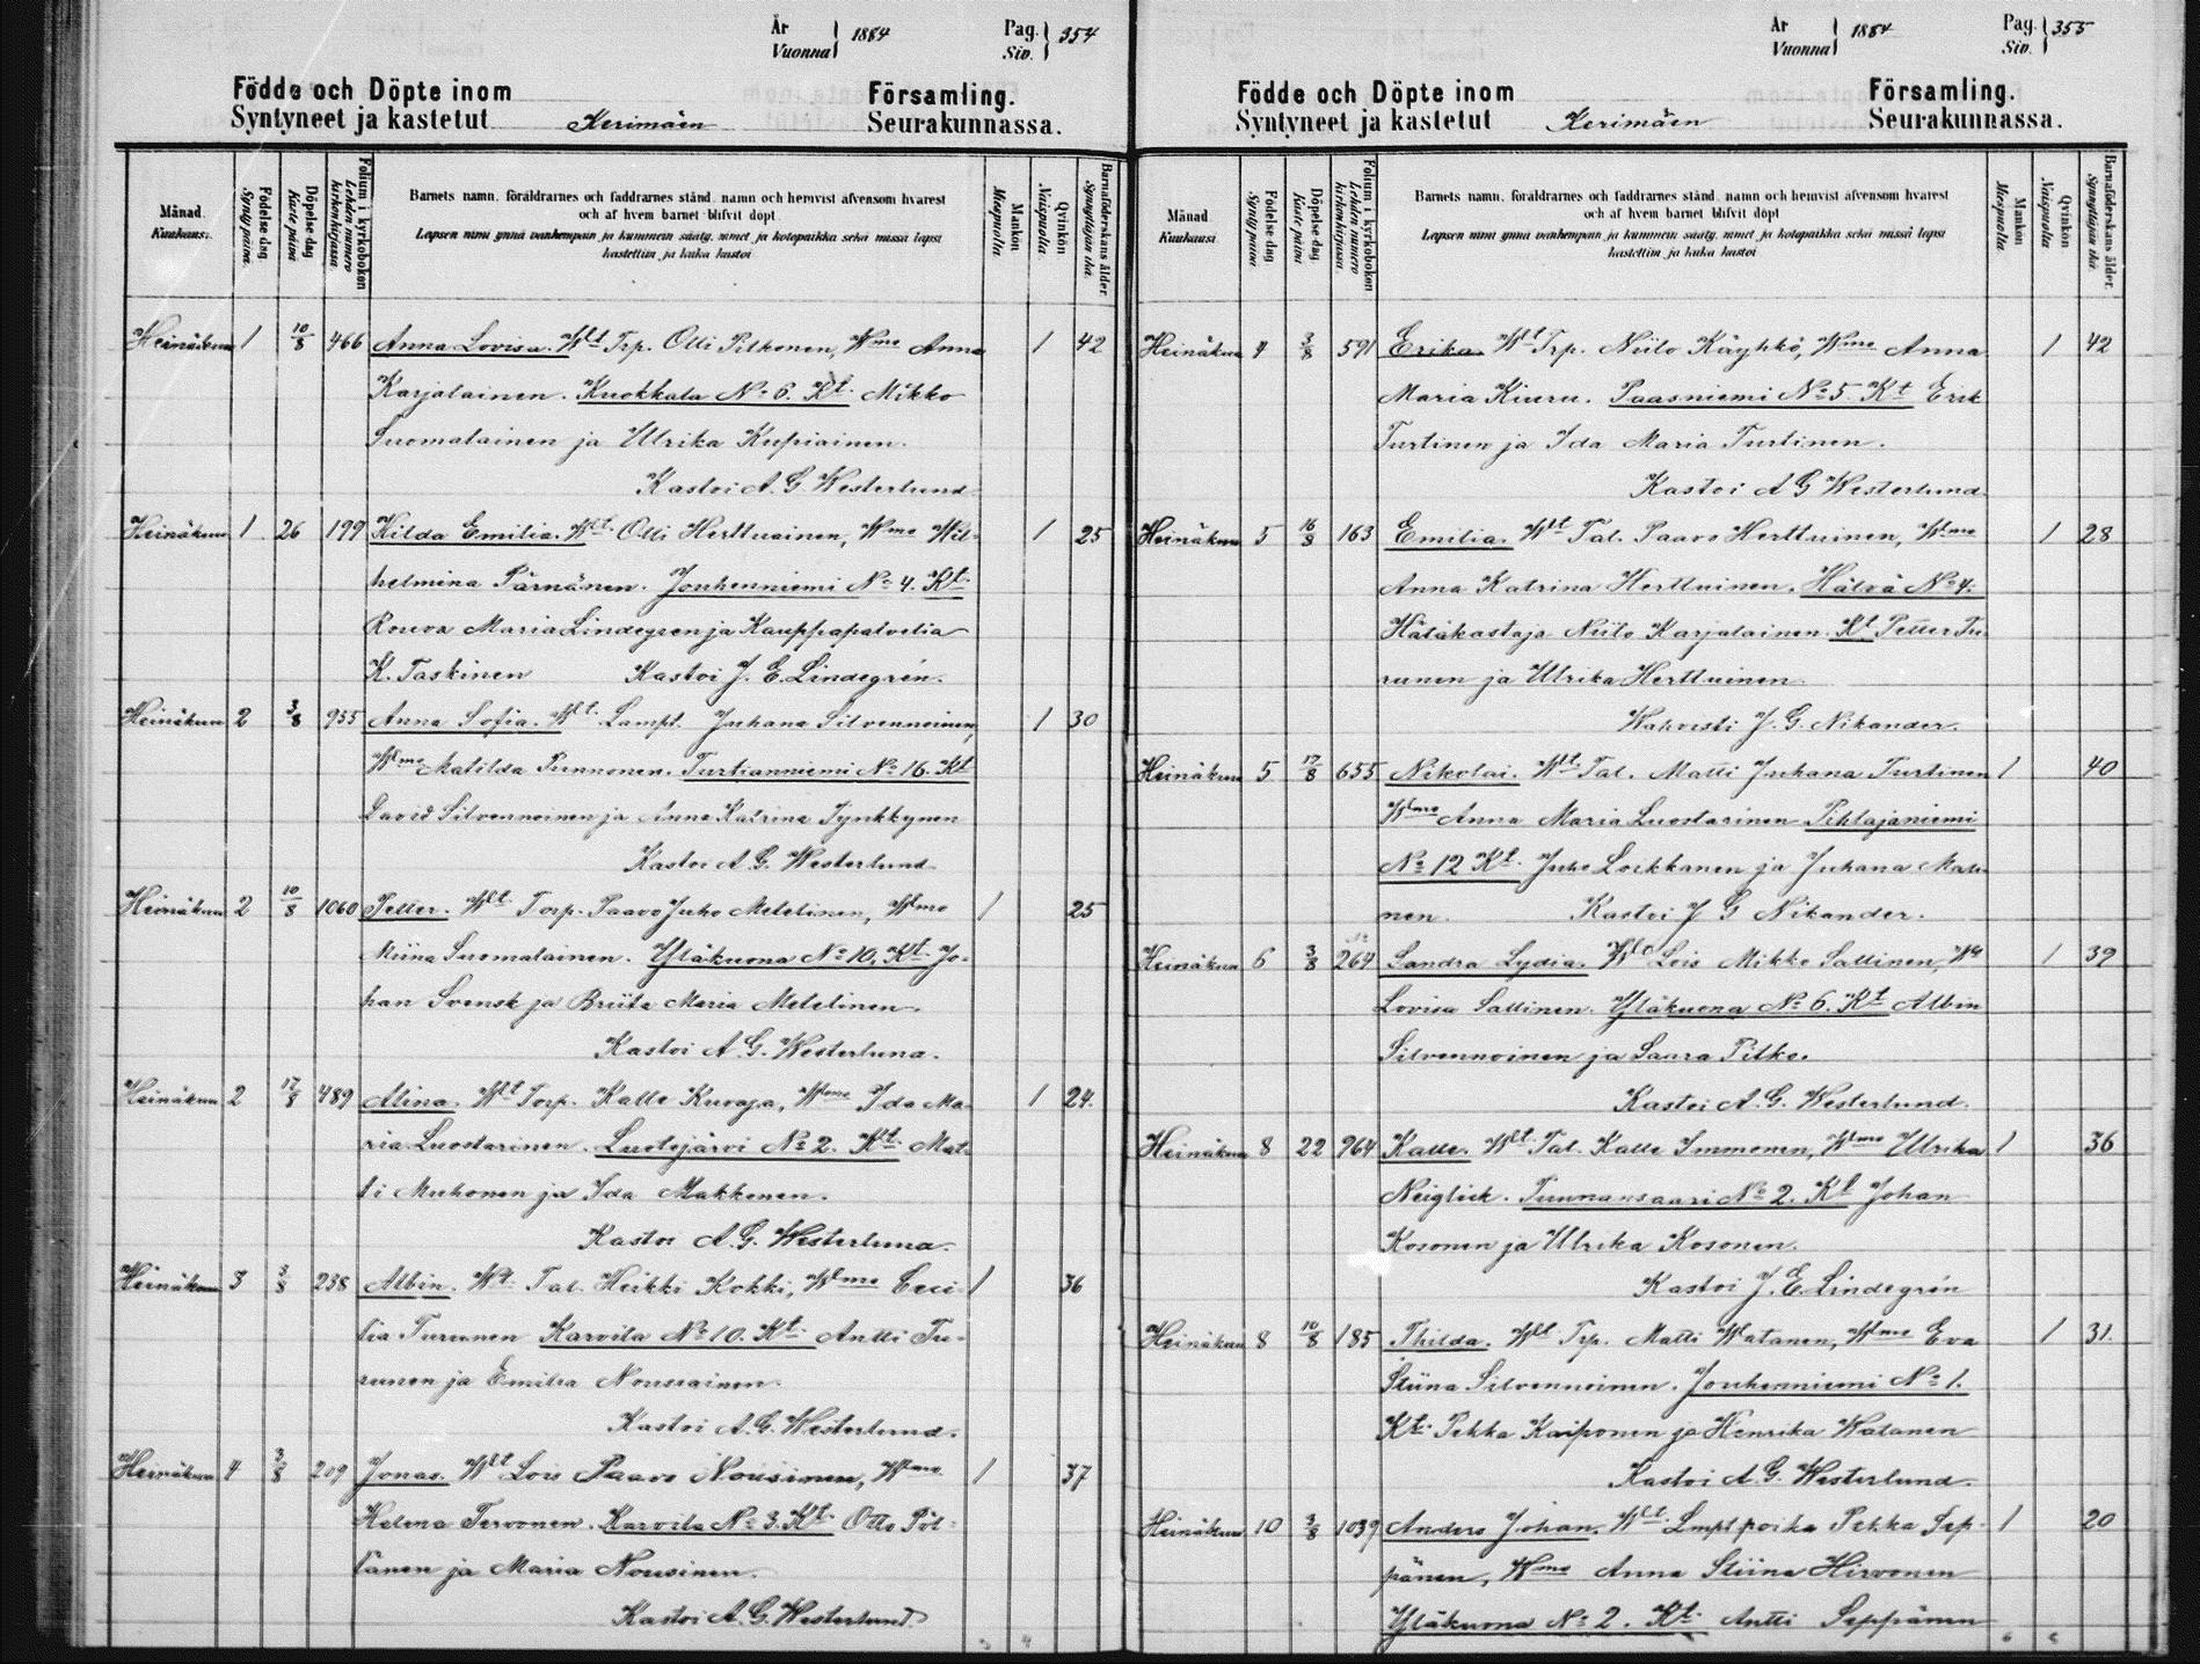 År
Vuonna } 1884
Pag.
Siv. } 354
Födde och Döpte inom Församling.
Syntyneet ja kastetut Kerimäen Seurakunnassa.
Månad.
Kuukausi.
Födelse dag
Synty päivä.
Döpelse dag
Kaste päivä
Folium i kyrkoboken
Lehden numero
kirkonkirjassa
Barnets namn, föräldrarnes och faddrarnes stånd, namn och hemvist äfvensom hvarest
och af hvem barnet blifvit döpt.
Lapsen nimi ynnä vanhempain ja kummein sääty, nimet ja kotopaikka sekä missä lapsi
kastettiin ja kuka kastoi
Mankön
Miespuolia
Qvinkön
Naispuolia
Barnaföderskans ålder
Synnyttäjän ikä.
Heinäkuu 1 10/8 466 Anna Lovisa. Wlt Trp. Olli Pitkonen, Wmo Anna 1 42
Karjalainen. Kuokkala No 6. Kt. Mikko
Suomalainen ja Ulrika Kupiainen.
Kastoi A. G. Westerlund
Heinäkuu 1 26 199 Hilda Emilia. Wlt. Olli Herttuainen, Wmo Wil- 1 25
helmina Pärnänen. Jouhenniemi No 4. Kt.
Rouva Maria Lindegren ja Kauppapalvelia
K. Taskinen Kastoi J. E. Lindegrén.
Heinäkuu 2 3/8 955 Anna Sofia. Wlt. Lampt. Juhana Silvennoinen, 1 30
Wmo Matilda Punnonen. Turtianniemi No 16. Kt
David Silvennoinen ja Anna Katrina Tynkkynen
Kastoi A. G. Westerlund
Heinäkuu 2 10/8 1060 Petter. Wlt. Torp. Paavo Juho Metelinen, Wmo 1 25
Miina Suomalainen. Yläkuona No 10. Kt. Jo-
han Svensk ja Briita Maria Metelinen.
Kastoi A. G. Westerlund.
Heinäkuu 2 17/8 489 Alina. Wlt Torp. Kalle Kuvaja, Wmo Ida Ma- 1 24.
ria Luostarinen. Luotojärvi No 2. Kt. Mat-
ti Muhonen ja Ida Makkonen.
Kastoi A. G. Westerlund.
Heinäkuu 3 3/8 238 Albin. Wlt. Tal. Heikki Kokki, Wmo Ceci- 1 36
lia Turunen Karvila No 10. Kt. Antti Tu-
runen ja Emilia Nousiainen.
Kastoi A. G. Westerlund.
Heinäkuu 4 3/8 209 Jonas. Wlt Lois Paavo Nousinen, Wmo. 1 37
Helena Tervonen. Karvila No 3. Kt. Otto Pöl-
länen ja Maria Nousinen.
Kastoi A. G. Westerlund
År
Vuonna } 1884
Pag.
Siv. } 355
Födde och Döpte inom Församling.
Syntyneet ja kastetut Kerimäen Seurakunnassa.
Månad
Kuukausi
Födelse dag
Synty päivä
Döpelse dag
Kaste päivä
Folium i kyrkoboken
Lehden numero
kirkonkirjassa
Barnets namn, föräldrarnes och faddrarnes stånd, namn och hemvist äfvensom hvarest
och af hvem barnet blifvit döpt
Lapsen nimi ynnä vanhempain ja kummein sääty, nimet ja kotopaikka sekä missä lapsi
kastettiin ja kuka kastoi
Mankön
Miespuolia
Qvinkön
Naispuolia
Barnaföderskans ålder.
Synnyttäjän ikä
Heinäkuu 4 3/8 591 Erika. Wlt Trp. Niilo Käyhkö, Wmo Anna 1 42
Maria Kiuru. Paasniemi No 5. Kt Erik
Turtinen ja Ida Maria Turtinen.
Kastoi A G Westerlund
Heinäkuu 5 16/8 163 Emilia. Wlt Tal. Paavo Herttuinen, Wmo 1 28
Anna Katrina Herttuinen. Hälvä No 4.
Hätäkastaja Niilo Karjalainen. Kt Petter Tu-
runen ja Ulrika Herttuinen.
Wahvisti J. G. Nikander.
Heinäkuu 5 17/8 655 Nikolai. Wlt. Tal. Matti Juhana Turtinen 1 40
Wmo Anna Maria Luostarinen Pihlajaniemi
No 12 Kt. Juho Loikkanen ja Juhana Mali-
nen. Kastoi J G Nikander.
Heinäkuu 6 3/8 264 Sandra Lydia. Wlt Lois Mikko Sallinen, Wo 1 39
Lovisa Sallinen. Yläkuona No 6. Kt Albin
Silvennoinen ja Laura Pitko.
Kastoi A. G. Westerlund.
Heinäkuu 8 22 964 Kalle. Wlt. Tal. Kalle Immonen, Wmo Ulrika 1 36
Neiglick. Punnansaari No 2. Kt Johan
Kosonen ja Ulrika Kosonen.
Kastoi J. E. Lindegrén
Heinäkuu 8 10/8 185 Thilda. Wlt Trp. Matti Watanen, Wmo Eva 1 31.
Stiina Silvennoinen. Jouhenniemi No 1.
Kt. Pekka Kaiponen ja Henrika Watanen
Kastoi A. G. Westerlund.
Heinäkuu 10 3/8 1039 Anders Johan. Wlt. Lmpt poika Pekka Sep- 1 20
pänen, Wmo Anna Stiina Hirvonen
Yläkuona No 2. Kt. Antti Seppänen